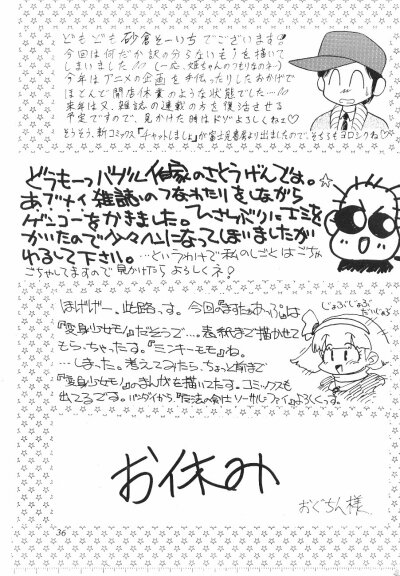 どもども砂倉そーいちでございます
今回は何だか訳の分らないもうを描いて
しまいました(一応、姫ちゃんのつもりなのネ)
今年はアニメの企画を手伝ったりしたおかげで
ほとんど開店休業のような状態でした…
来年は又、雑誌の連載の方を復活させる
予定ですので、見かけた時はドゾよろしくね♡
そうそう、新コミックス『チャットしましょ』が富士見書房より出ましたので、そちらもヨロシクね♡
どうもーっバウリ作家のさとうげんです。
あブナイ雑誌のつなわたりをしながら
ゲンコーをかきました。ひさしぶりにトーンを
かいたので少々ヘンになってしまいましたが
ゆるして下さい。…というわけで私のしごとはごちゃ
ごちゃしてますので見かけたらよろしくネ?
ほげげー。此路っす。今回の『ますたあっぷ』は
『変身少女モノ』だそうで…表紙まで描かせて
もらっちゃたす。『ミンキーモモ』ね。
…しまった。考えてみたら、ちょっと前まで
『変身少女モノ』のまんがを描いてたす。コミックスも
出てるです。バンダイから『魔法の剣士ソーサル・ファイ』よろしくっス。
じょぶじょぶ
だいじょぶ
お休み
おぐちん様
36